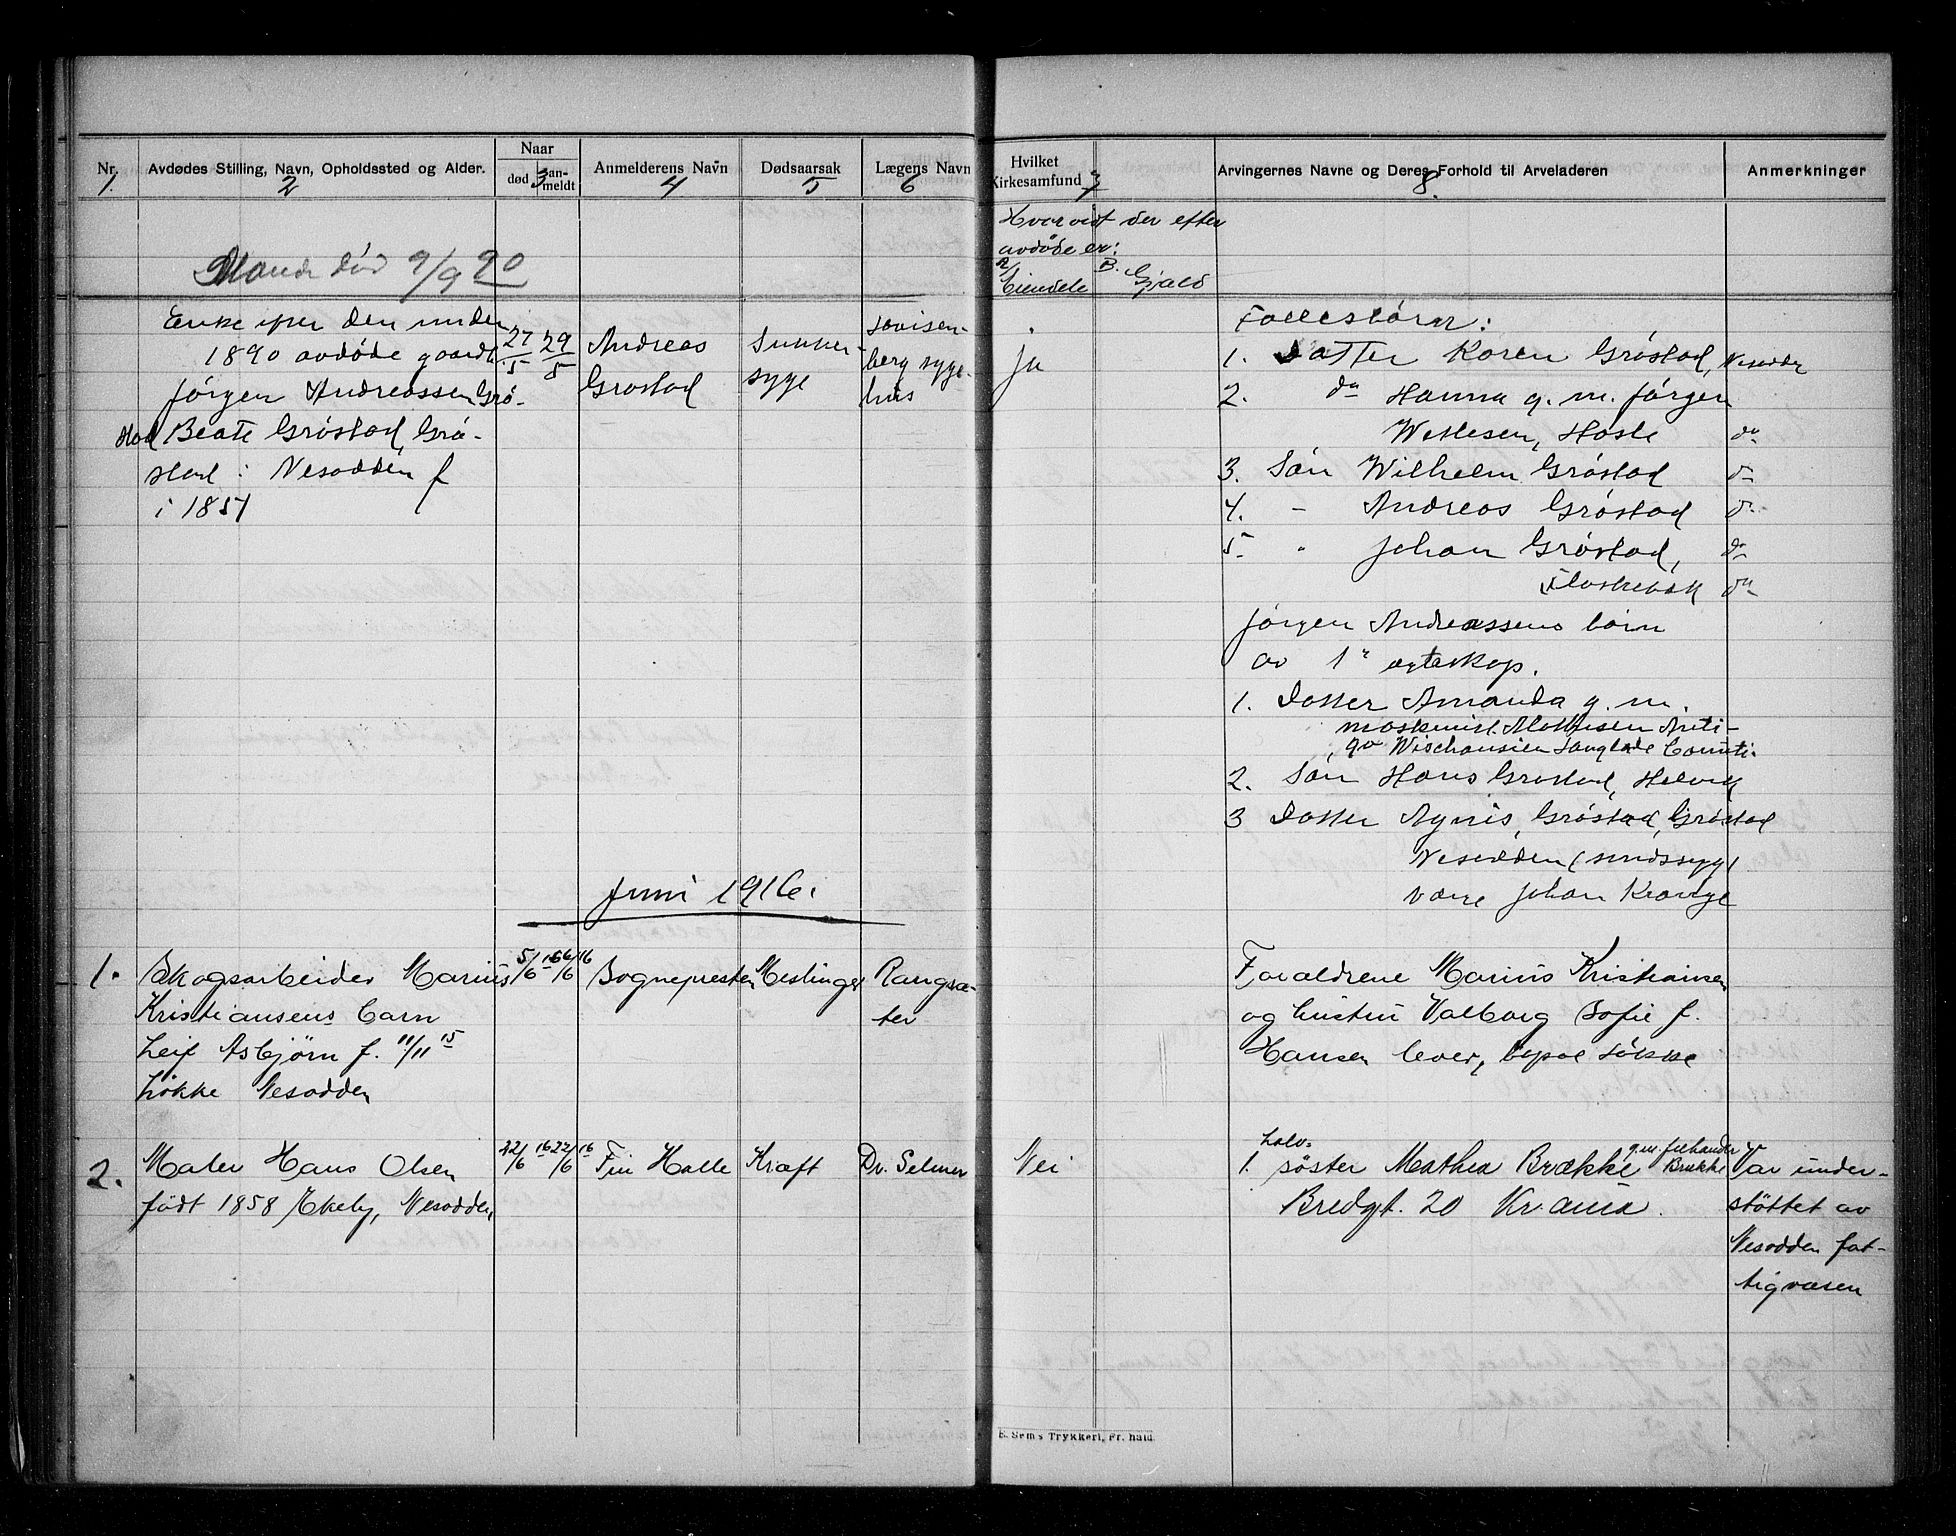 Nr. Avdødes Stilling, Navn, Opholdssted og Alder. Naar død anmeldt Anmelderens Navn Dødsaarsak Lægens Navn Hvilket Kirkesamfund Arvingernes Navne og Deres Forhold til Arveladeren Anmerkninger
1. 2 3 4 5 6 7 8.
Hvorvidt der efter
avdøde er:
A/ Eiendele B. Gjæld
Mand død 9/9 90
Enke efter den under
1890 avdøde gaardb.
Jørgen Andreassen Grø-
stad Beate Grøstad, Grø-
stad i Nesodden f
i 1851
27/5 29/5
Andreas
Grøstad
Sukker-
syge
Lovisen-
berg syge-
hus
Ja
Fællesbørn:
1. Datter Karen Grøstad, Nesodde
2. do Hanna g. m. Jørgen
Wetlesen, Hasle do
3. Søn Wilhelm Grøstad do
4. - Andreas Grøstad do
5 " Johan Grøstad, do
do
Jørgen Andreassens børn
av 1' egteskap.
1. Datter Amanda g. m.
maskinist Mathisen
2. Søn Hans Grøstad, Helvik
3 Datter Agnes, Grøstad, Grøstad
Nesodden (sindssyg)
værge Johan Krange
Juni 1916.
1. Skogsarbeider Marius
Kristiansens barn
Leif Asbjørn f. 11/11 15
Løkke Nesodden
5/6 16 6/6 16
Sognepresten
Meslinger
Rangsæ-
ter
Forældrene Marius Kristiansen
og hustru Valborg Sofie f.
Hansen lever, bopæl Løkke
2. Maler Hans Olsen
født 1858 Ekely, Nesodden
22/6 16 22/6 16
Fin Halle
Kræft
Dr. Selmer
Nei
halv-
1. søster Mathea Brække g.m. felhandler Brække
Bredgt. 20 Kr.ania.
Var under-
støttet av
Nesodden fat-
tigvæsen
E. Sem's Trykkeri, Fr. hald.